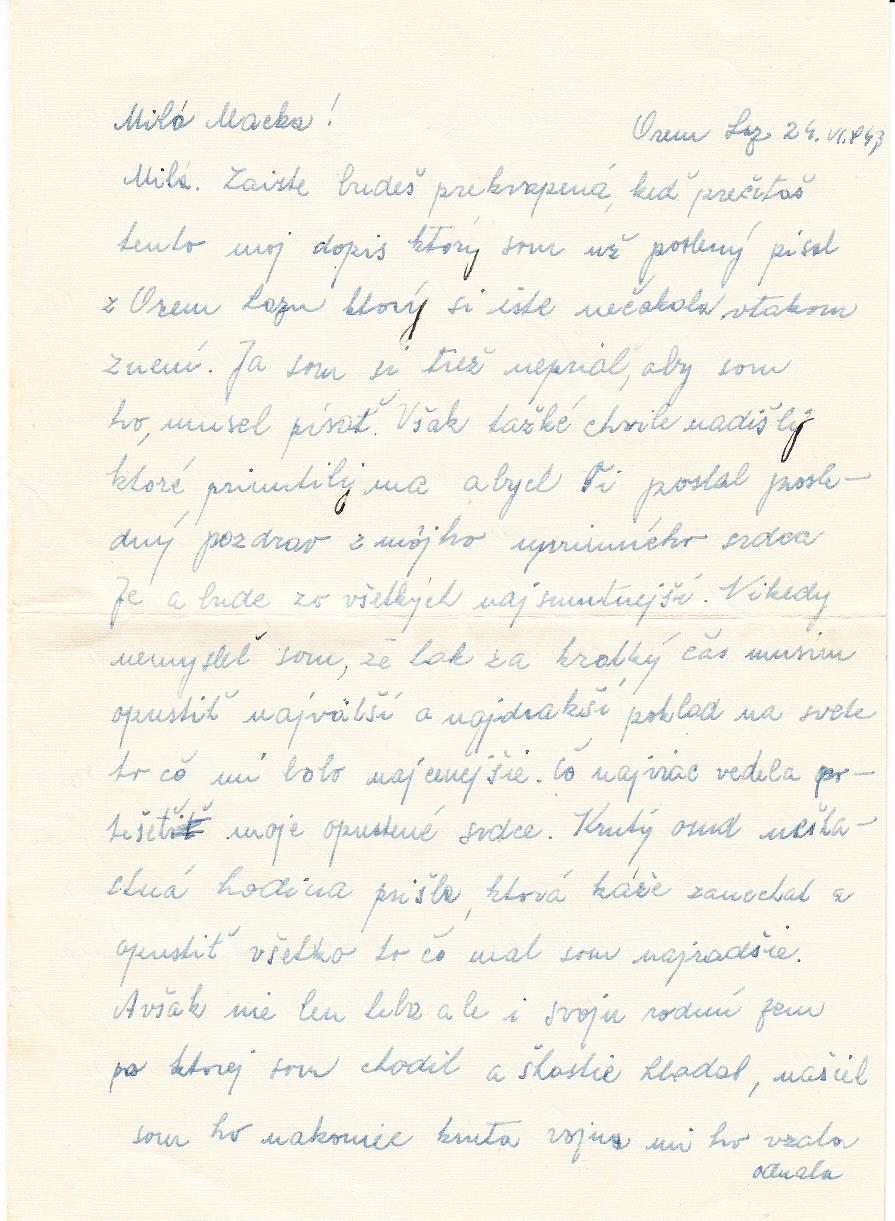 Milá Macka!
Orem Laz 24.VI.943
Milá. Zaiste budeš prekvapená, keď prečítaš
tento moj dopis ktorý som už poslený písal
z Orem Lazu ktorý si ište nečakala vtakom
znení. Ja som si tiež neprial, aby som
ho, musel písať. Však tažké chvile nadišly
ktoré prinutily ma abych Ti poslal posle-
dný pozdrav z môjho uprimného srdca
Je a bude zo všetkých najsmutnejší. Nikedy
nemyslel som, že tak za kratký čas musím
opustiť najväčší a najdrakší poklad na svete
to čo mi bolo najcenejšie. Čo najviac vedela po-
tešiť moje opustené srdce. Krutý osud nešťa-
stná hodina prišla, ktorá káže zanechat a
opustiť všetko to čo mal som najradšie.
Avšak nie len teba ale i svoju rodnú zem
po ktorej som chodil a štastie hladal, našiel
som ho nakoniec kruta vojna mi ho vzala
odňala